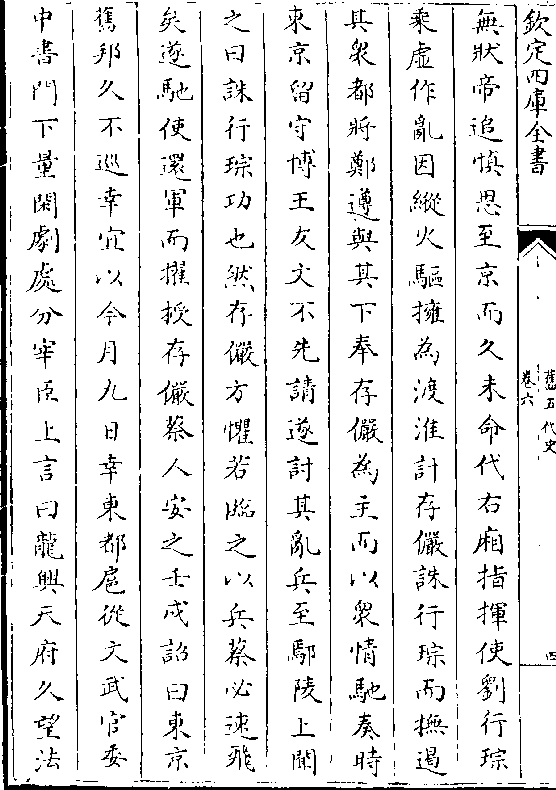 欽定四庫全書
舊五代史
卷六
四
無狀帝追慎思至京而久未命代右廂指揮使劉行琮
乘虛作亂因縱火驅擁為渡淮計存儼誅行琮而撫遏
其衆都將鄭遵與其下奉存儼為主而以衆情馳奏時
東京留守博王友文不先請遂討其亂兵至鄢陵上聞
之曰誅行琮功也然存儼方懼若臨之以兵蔡必速飛
矣遂馳使還軍而擢授存儼蔡人安之壬戌詔曰東京
舊邦久不巡幸宜以今月九日幸東都扈從文武官委
中書門下量閑劇處分宰臣上言曰龍興天府久望法